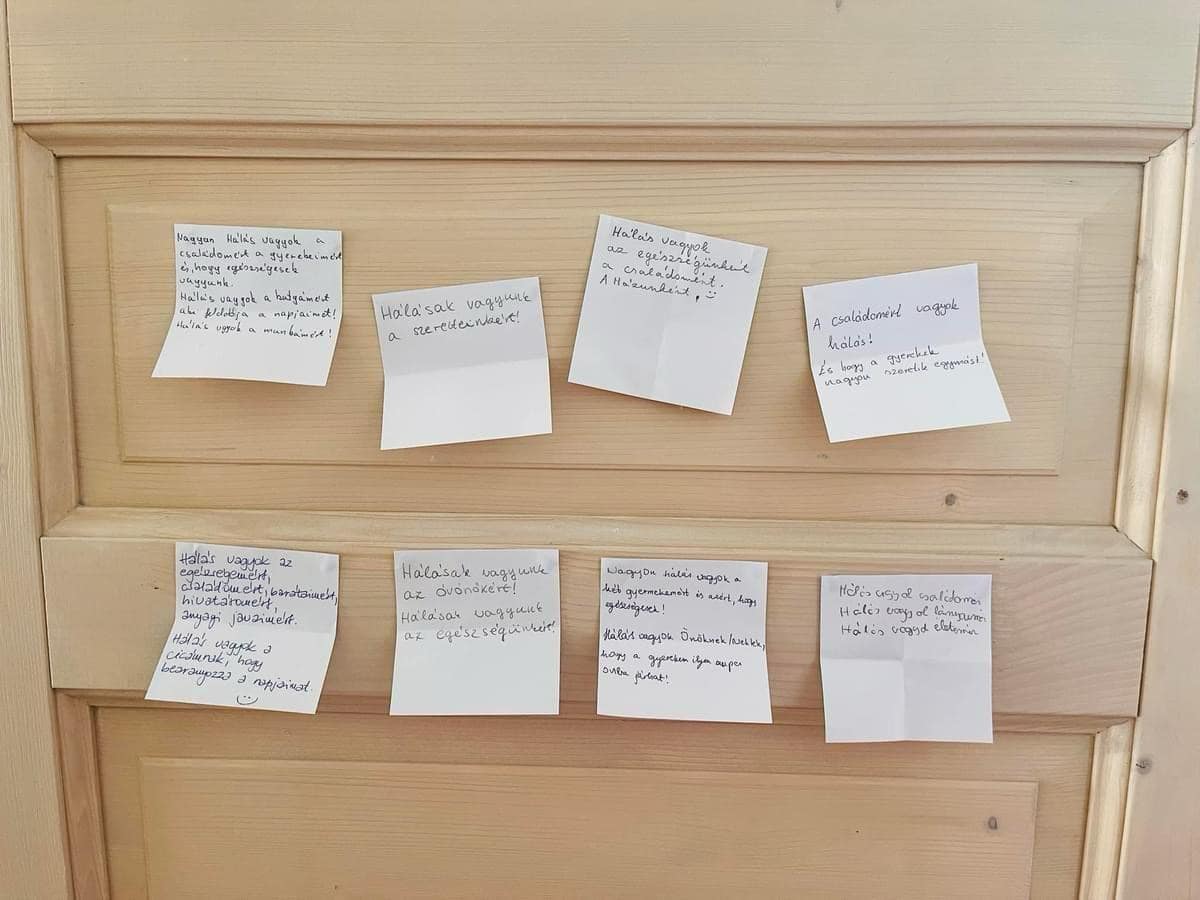 Nagyon Hálás vagyok a
családomért a gyerekeimért
és, hogy egészségesek
vagyunk.
Hálás vagyok a kutyámért
aki feldobja a napjaimat!
Hálás vgyok a munkámért!
Hálásak vagyunk
a szeretteinkért!
Hálás vagyok
az egészségünkért
a családomért.
A Házunkért,
A családomért vagyok
hálás!
És hogy a gyerekek
nagyon szeretik egymást!
Hálás vagyok az
egészségemért,
családomért, barátaimért,
hivatásomért,
anyagi javaimért.
Hálás vagyok a
cicámnak, hogy
bearanyozza a napjaimat.
Hálásak vagyunk
az óvónőkért!
Hálásak vagyunk
az egészségünkért!
Nagyon hálás vagyok a
két gyermekemért és azért, hogy
egészségesek!
Hálás vagyok Önöknek/Nektek,
hogy a gyerekem ilyen szuper
oviba járhat!
Hálás
Hálás
Hálás